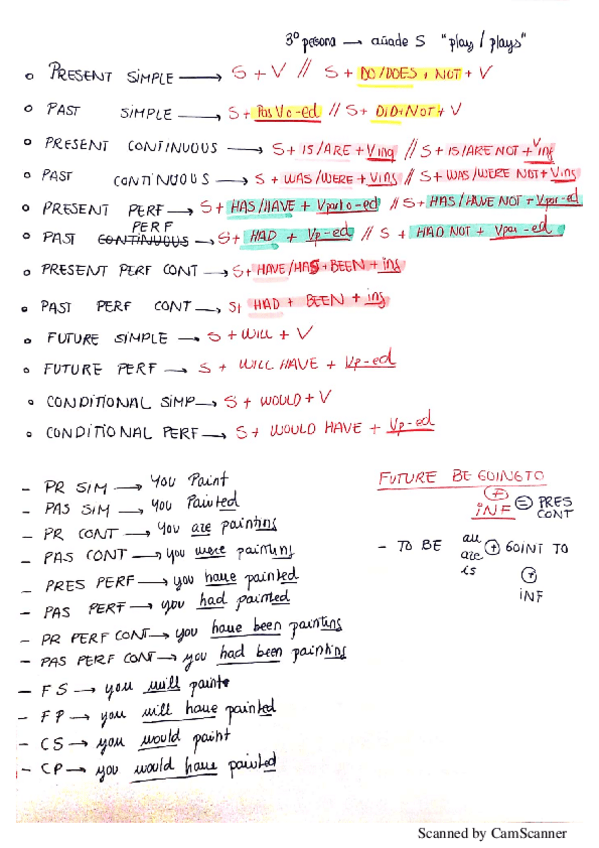 3º persona → añade S "play/plays"
○ PRESENT SIMPLE → S + V // S + DO/DOES + NOT + V
○ PAST SIMPLE → S + Pas V o -ed // S + DID + NOT + V
○ PRESENT CONTINUOUS → S + IS/ARE + Ving // S + IS/ARE NOT + Ving
○ PAST CONTINUOUS → S + WAS/WERE + Ving // S + WAS/WERE NOT + Ving
○ PRESENT PERF → S + HAS/HAVE + Vpart o -ed // S + HAS/HAVE NOT + Vpar -ed
○ PAST CONTINUOUS PERF → S + HAD + Vp -ed // S + HAD NOT + Vpar -ed
○ PRESENT PERF CONT → S + HAVE/HAS + BEEN + ing
○ PAST PERF CONT → S + HAD + BEEN + ing
○ FUTURE SIMPLE → S + WILL + V
○ FUTURE PERF → S + WILL HAVE + Vp -ed
○ CONDITIONAL SIMP → S + WOULD + V
○ CONDITIONAL PERF → S + WOULD HAVE + Vp -ed
- PR SIM → You Paint
- PAS SIM → you Painted
- PR CONT → You are painting
- PAS CONT → you were painting
- PRES PERF → you have painted
- PAS PERF → you had painted
- PR PERF CONT → you have been painting
- PAS PERF CONT → you had been painting
- FS → you will paint
- FP → you will have painted
- CS → you would paint
- CP → you would have painted
FUTURE BE GOING TO
+
INF = PRES CONT
- TO BE are is + GOINT TO
+
INF
Scanned by CamScanner